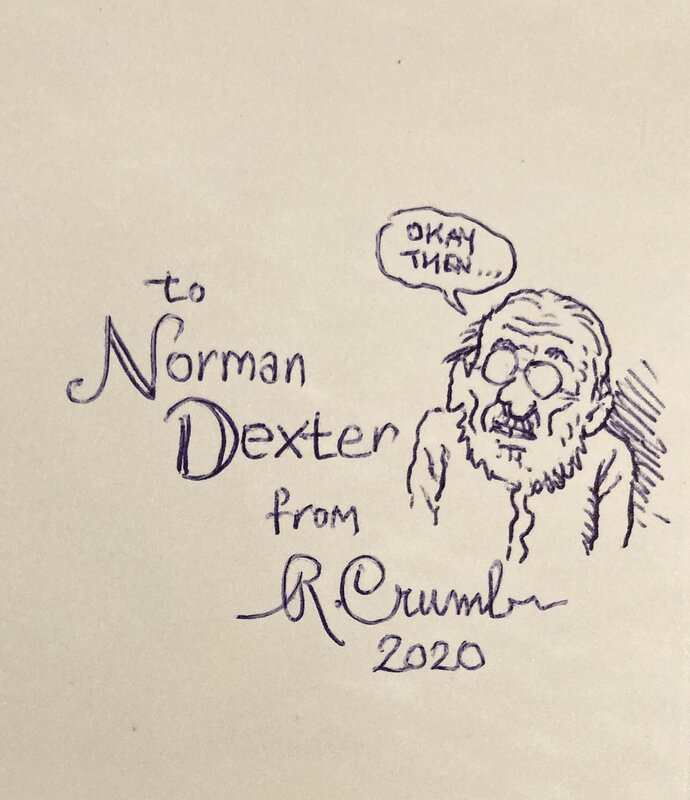 OKAY
THEN...
to
Norman
Dexter
from
R. Crumb
2020